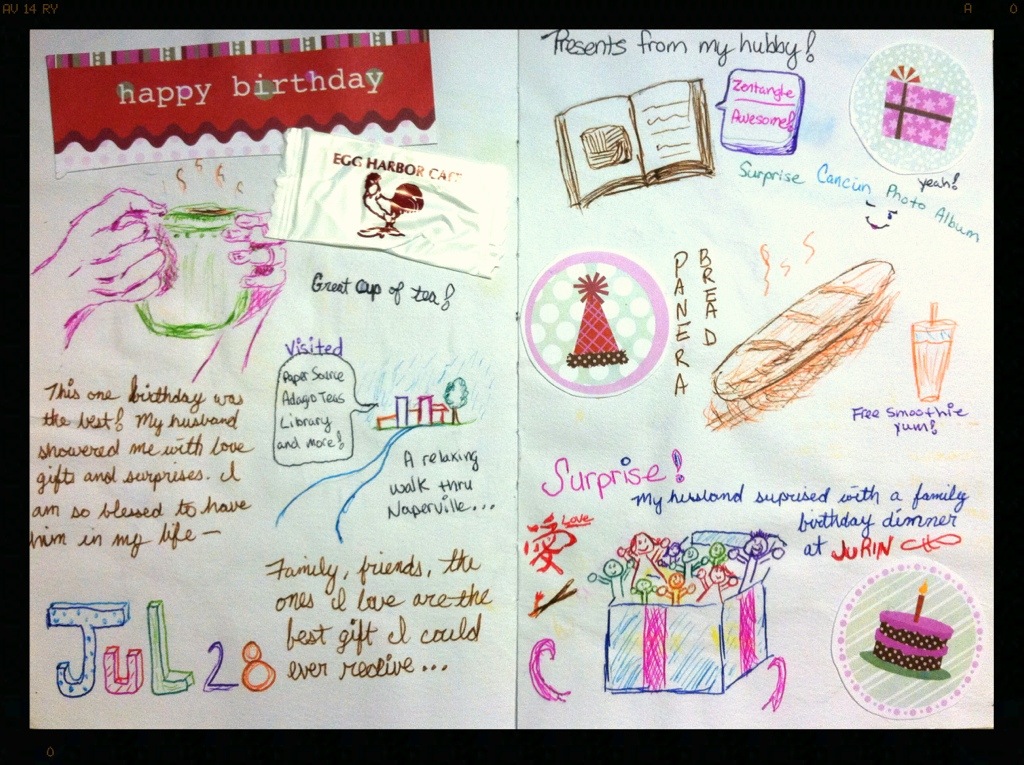 AV 14 RY
A 0
happy birthday
EGG HARBOR CAF
Great cup of tea!
Visited
Paper Source
Adagio Teas
Library
and more!
This one birthday was
the best! My husband
showered me with love
gifts and surprises. I
am so blessed to have
him in my life -
A relaxing
walk thru
Naperville...
Family, friends, the
ones I love are the
best gift I could
ever receive...
JUL 28
Presents from my hubby!
Zentangle
Awesome!
yeah!
Surprise Cancun Photo Album
PANERA
BREAD
Free Smoothie
yum!
Surprise!
My husband suprised with a family
birthday dinner
at JURIN
Love
愛
0